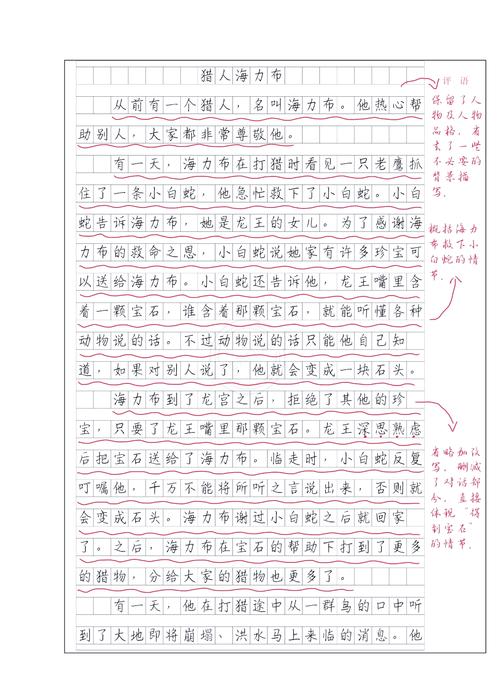 猎人海力布
从前有一个猎人，名叫海力布。他热心帮
助别人，大家都非常尊敬他。
有一天，海力布在打猎时看见一只老鹰抓
住了一条小白蛇，他急忙救下了小白蛇。小白
蛇告诉海力布，她是龙王的女儿。为了感谢海
力布的救命之恩，小白蛇说她家有许多珍宝可
以送给海力布。小白蛇还告诉他，龙王嘴里含
着一颗宝石，谁含着那颗宝石，就能听懂各种
动物说的话。不过动物说的话只能他自己知
道，如果对别人说了，他就会变成一块石头。
海力布到了龙宫之后，拒绝了其他的珍
宝，只要了龙王嘴里那颗宝石。龙王深思熟虑
后把宝石送给了海力布。临走时，小白蛇反复
叮嘱他，千万不能将所听之言说出来，否则就
会变成石头。海力布谢过小白蛇之后就回家
了。之后，海力布在宝石的帮助下打到了更多
的猎物，分给大家的猎物也更多了。
有一天，他在打猎途中从一群鸟的口中听
到了大地即将崩塌、洪水马上来临的消息。他
评语
保留了人
物及人物
品格，省
去了一些
不必要的
背景描
写。
概括海力
布救下小
白蛇的情
节。
省略加改
写，删减
了对话部
分，直接
体现“得
到宝石”
的情节。